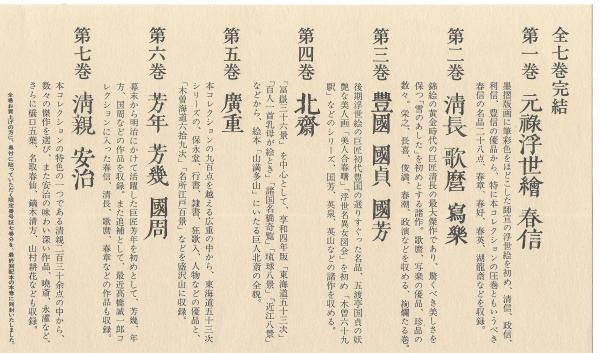 全七巻完結
第一巻 元祿浮世繪 春信
墨摺版画に筆彩色をほどこした師宣の浮世絵を初め、清信、政信、
利信、豊信の優品から、特に本コレクションの圧巻ともいうべき
春信の名品二十八点、春章、春好、春英、湖龍斎などを収録。
第二巻 淸長 歌麿 寫樂
錦絵の黄金時代の巨匠清長の最大傑作であり、驚くべき美しさを
保つ「雪のあした」を初めとする諸作。歌麿、写楽の優品、珍品の
数々。栄之、長喜、俊満、春潮、政演などを収める、絢爛たる巻。
第三巻 豊國 國貞 國芳
後期浮世絵の巨匠初代豊国の選りすぐった名品、五渡亭国貞の妖
艶な美人画「美人合春曙」、「浮世名異女図会」を初め「木曽六十九
駅」などのシリーズ、国芳、英泉、英山などの諸作を収める。
第四巻 北齋
「冨嶽三十六景」を中心として、享和四年版「東海道五十三次」
「百人一首乳母が絵とき」「諸国名橋奇覧」「琉球八景」「近江八景」
などから、絵本「山満多山」にいたる巨人北斎の全貌。
第五巻 廣重
本コレクションの九百点を越える広重の中から、東海道五十三次
シリーズの、保永堂、行書、隷書、狂歌入、人物などの優品と、
「木曽海道六拾九次」「名所江戸百景」などを盛沢山に収録。
第六巻 芳年 芳幾 國周
幕末から明治にかけて活躍した巨匠芳年を初めとして、芳幾、年
方、国周などの作品を収録。また追補として、最近高橋誠一郎コ
レクションに入った春信、清長、歌麿、春章などの作品も収録。
第七巻 淸親 安治
本コレクションの特色の一つである清親二百三十余点の中から、
数々の傑作を選び、また安治の味わい深い作品、暁斎、永濯など、
さらに橋口五葉、名取春仙、鏑木清方、山村耕花なども収録。
全巻お買上げの方に、巻付に貼っていただく限定番号紙七巻分を、最終回配本の本巻に同封いたしました。